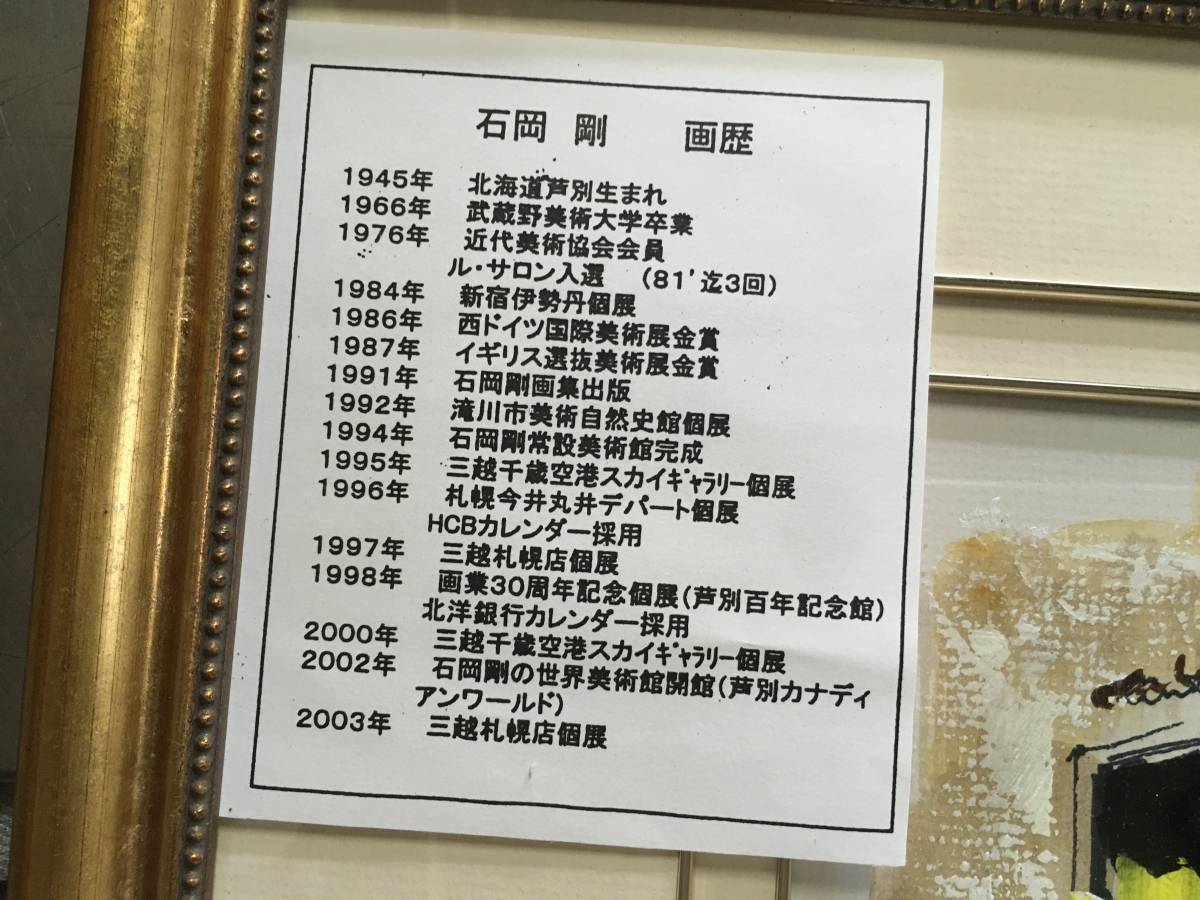 石岡 剛 画歴
1945年 北海道芦別生まれ
1966年 武蔵野美術大学卒業
1976年 近代美術協会会員
ル・サロン入選 (81'迄3回)
1984年 新宿伊勢丹個展
1986年 西ドイツ国際美術展金賞
1987年 イギリス選抜美術展金賞
1991年 石岡剛画集出版
1992年 滝川市美術自然史館個展
1994年 石岡剛常設美術館完成
1995年 三越千歳空港スカイギャラリー個展
1996年 札幌今井丸井デパート個展
HCBカレンダー採用
1997年 三越札幌店個展
1998年 画業30周年記念個展(芦別百年記念館)
北洋銀行カレンダー採用
2000年 三越千歳空港スカイギャラリー個展
2002年 石岡剛の世界美術館開館(芦別カナディ
アンワールド)
2003年 三越札幌店個展